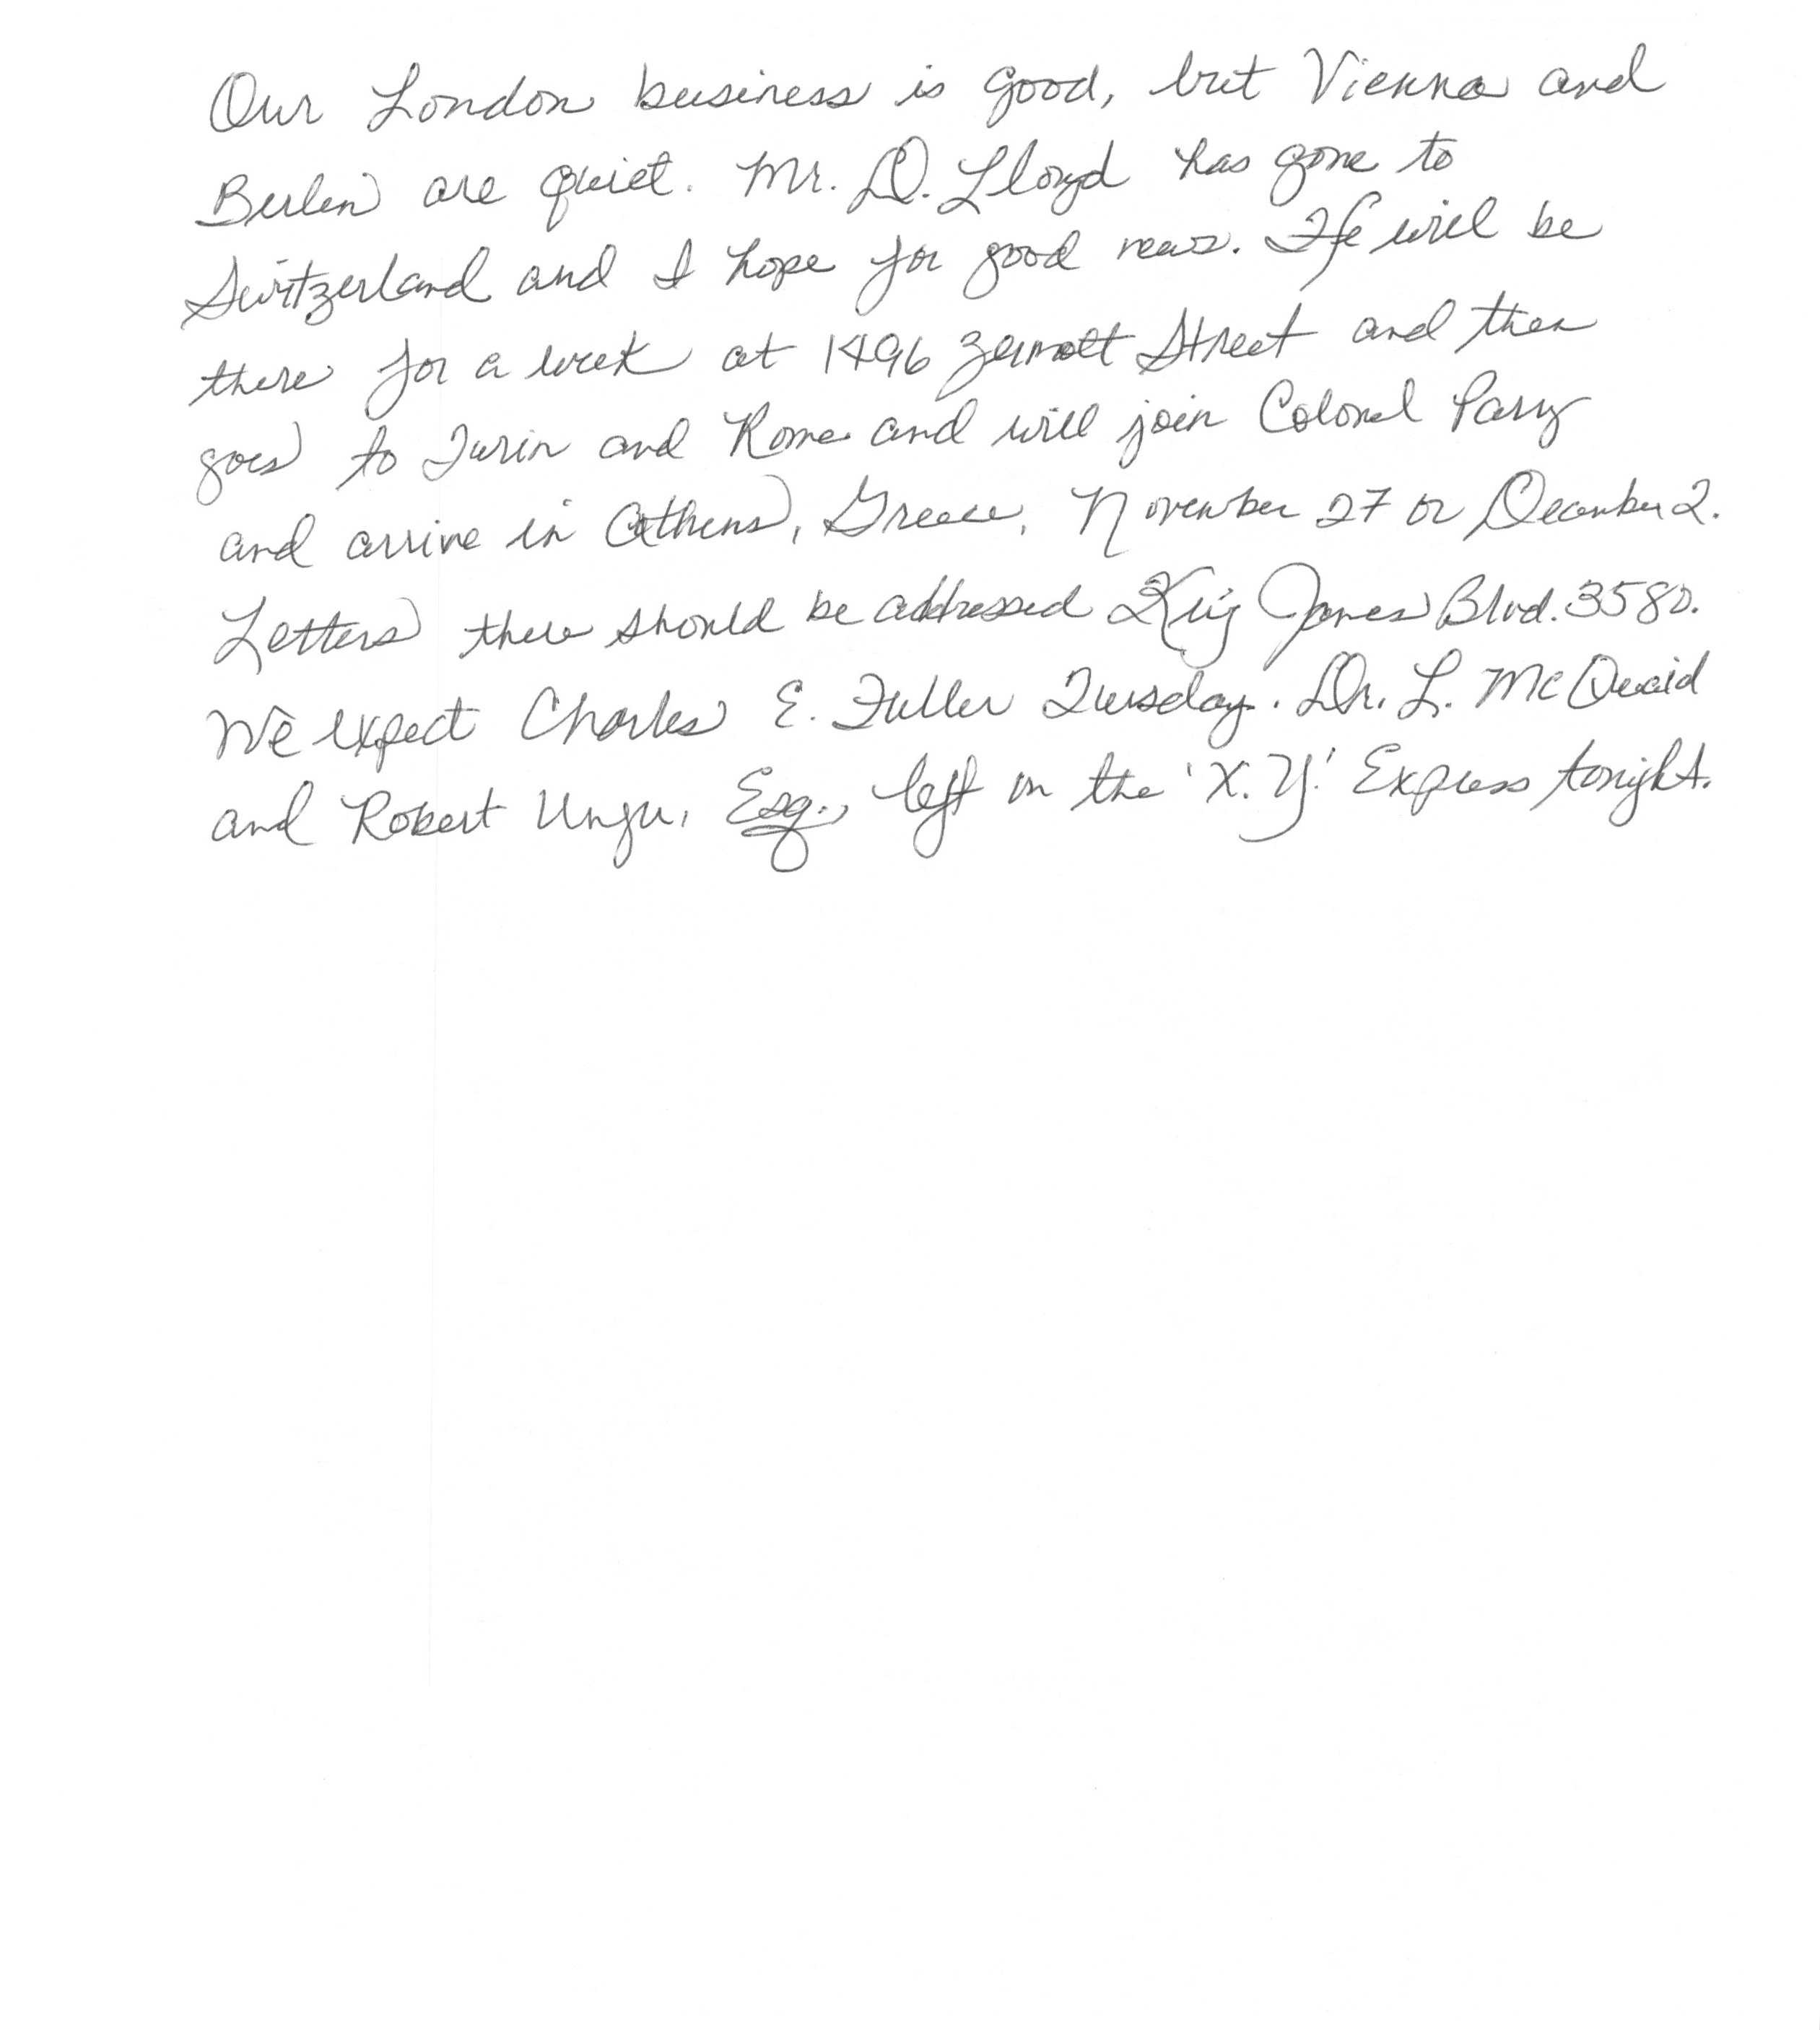 Our London business is good, but Vienna and
Berlin are quiet. Mr. D. Lloyd has gone to
Switzerland and I hope for good news. He will be
there for a week at 1496 Zermott Street and then
goes to Turin and Rome and will join Colonel Parry
and arrive in Athens, Greece, November 27 or December 2.
Letters there should be addressed King James Blvd. 3580.
We expect Charles E. Fuller Tuesday. Dr. L. McQuaid
and Robert Unger, Esq., left on the 'X. Y.' Express tonight.